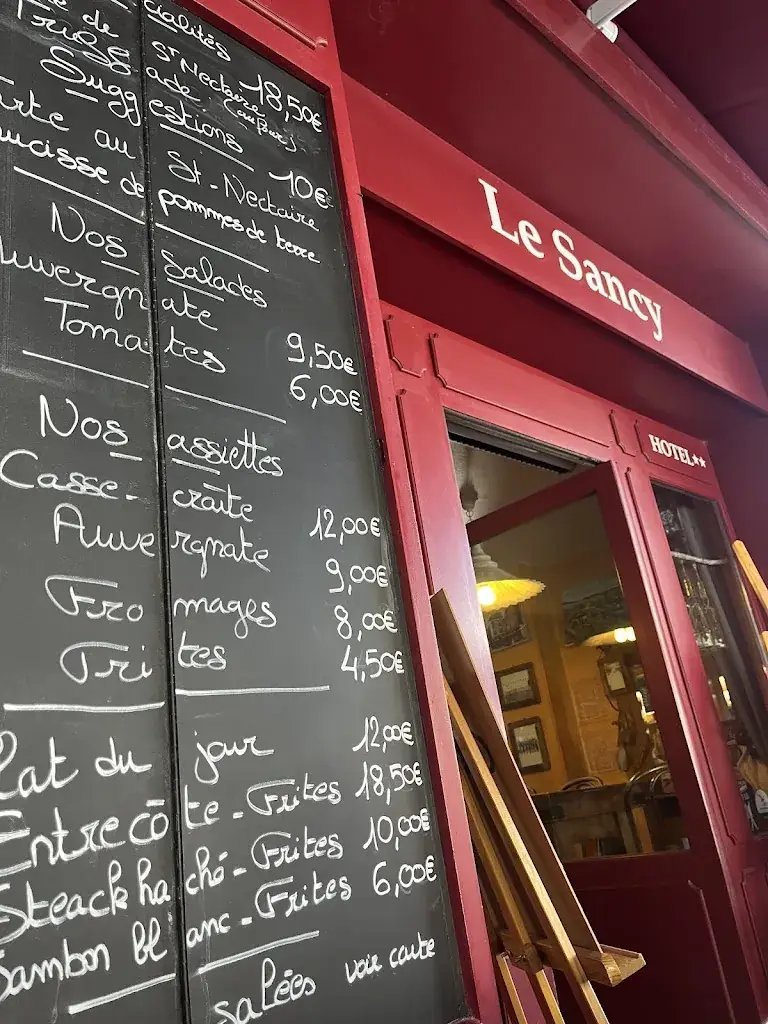 cialités
St Nectaire 18,50€
Suggestions
au St-Nectaire 10€
de pommes de terre
Nos salades
Auvergnate 9,50€
Tomates 6,00€
Nos assiettes
Casse-croûte 12,00€
Auvergnate 9,00€
Fromages 8,00€
Frites 4,50€
Plat du jour 12,00€
Entrecôte-Frites 18,50€
Steack haché-Frites 10,00€
Jambon blanc-Frites 6,00€
salées voir carte
Le Sancy
HOTEL**